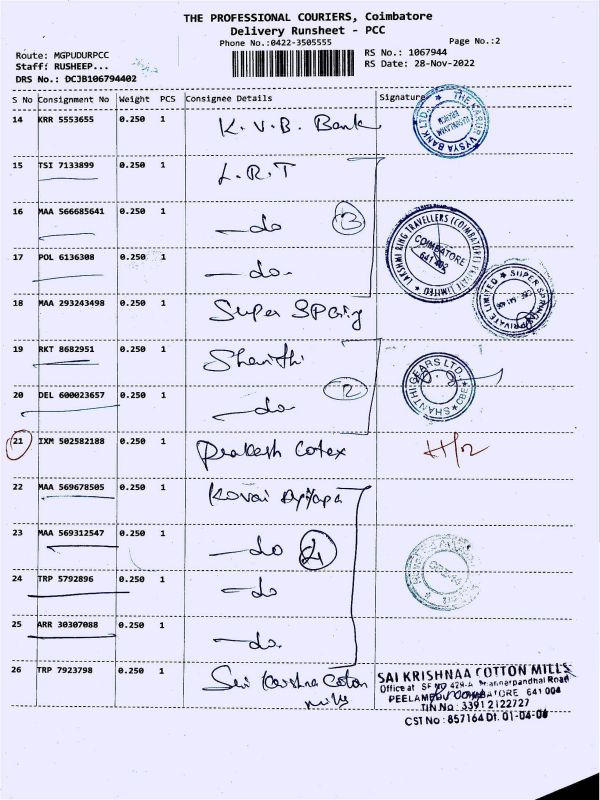 THE PROFESSIONAL COURIERS, Coimbatore
Delivery Runsheet - PCC
Phone No.:0422-3505555
Page No.:2
Route: MGPUDURPCC
Staff: RUSHEEP...
DRS No.: DCJB106794402
RS No.: 1067944
RS Date: 28-Nov-2022
S No Consignment No Weight PCS Consignee Details Signature
14 KRR 5553655 0.250 1 K.V.B. Bank
THE KARUR VYSYA BANK LTD.
15 TSI 7133899 0.250 1 L.R.T
16 MAA 566685641 0.250 1 -do 3
17 POL 6136308 0.250 1 -do-
LAKSHMI RING TRAVELLERS (COIMBATORE) PRIVATE LIMITED
COIMBATORE
641 402
18 MAA 293243498 0.250 1 Super
SUPER PRIVATE LIMITED
19 RKT 8682951 0.250 1 Shanthi
20 DEL 600023657 0.250 1 -do- 2
SHANTHI GEARS LTD. CBE
21 IXM 502582188 0.250 1 Prakash Cotex
22 MAA 569678505 0.250 1 Kovai
23 MAA 569312547 0.250 1 -do 4
24 TRP 5792896 0.250 1 -do-
25 ARR 30307088 0.250 1 -do-
26 TRP 7923798 0.250 1 Sai Krishna Coton
mills
SAI KRISHNAA COTTON MILLS
Office at SF No 429-A Road
PEELAMEDU COIMBATORE 641 004
TIN No : 33912122727
CST No : 857164 Dt. 01-04-